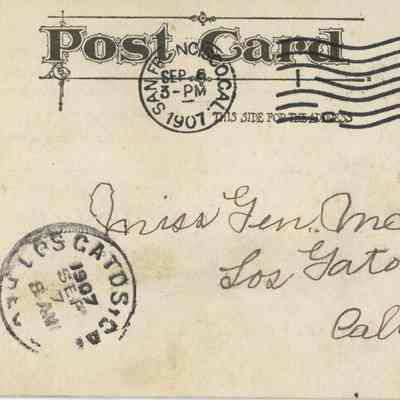 Post Card
SAN FRANCISCO, CAL.
SEP 6
3-PM
1907
THIS SIDE FOR THE ADDRESS
Miss Gen. Mc
Los Gato
Cal
LOS GATOS, CAL.
1907
SEP
7
8 AM